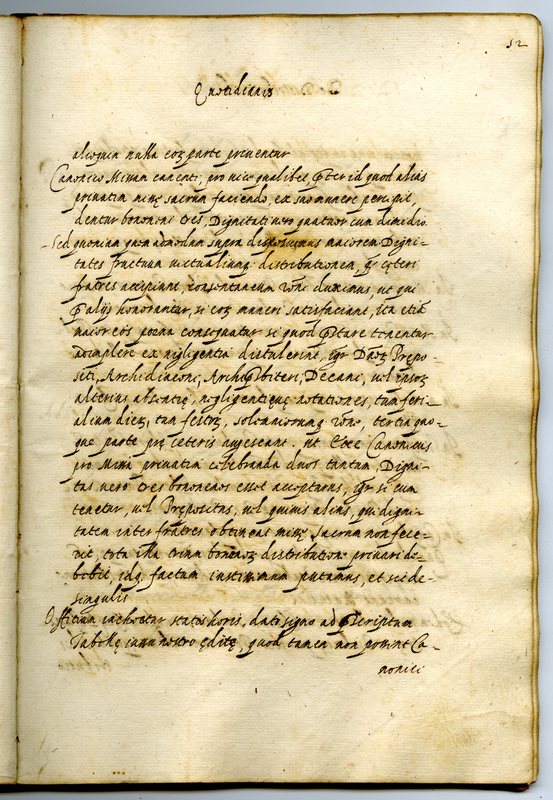 52
Quotidianis
alioquin nulla eoꝝ parte priuentur
Canonico Missam canenti, pro uice qualibet, pter id quod alias
priuatim missę sacrum faciendo, ex suo munere percipit,
dentur bononeni tres, Dignitati uero quatuor cum dimidio.
Sed quoniam quem admodum supra disposuimus maiorem Digni-
tates fructuum uictualiumq; distributionem, q̃ cęteri
fratres accipiunt, consentaneum rõni duximus, ut qui
p alijs honorantur, si eoꝝ muneri satisfaciant, ita etiã
maior eos poena consequatur si quod pstare tenentur
adimplere ex negligentia distulerint, igr̃ Dnoꝝ Prepo-
siti, Archidiaconi, Archipbiteri, Decani, uel ipsoꝝ
alterius absentię, negligentięuę notationes, tum feri-
alium dieꝝ, tum festoꝝ, solemniorumq; rõne, tertia quo-
que parte prę ceteris augescant. Ut Exẽ Canonicus
pro Missa priuatim celebranda duos tantum, Digni-
tas uero tres bononenos esset accepturus, igr̃ si cum
tenetur, uel Prepositus, uel quiuis alius, qui digni-
tatem inter fratres obtineat missę sacrum non fece-
rit, tota illa trium bonenoꝝ distributione priuari de-
bebit, idq; factum iustissimum putamus, et sic de
singulis
Officium inchoetur statis horis, dato signo ad pscriptum
Tabellę iussu nostro ęditę, quod tamen non possint Ca-
nonici